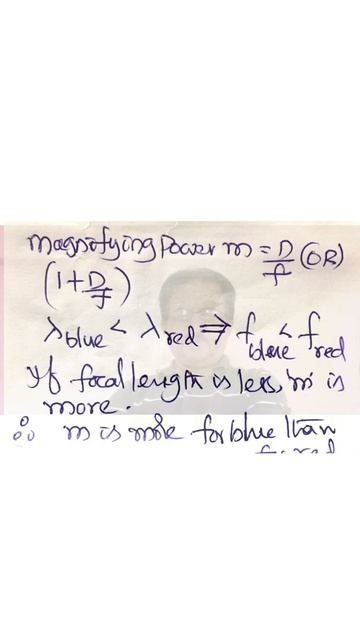 magnifying Power m = D/f (OR)
(1+D/f)
λblue < λred ⇒ fblue < fred
If focal length is less, 'm' is
more.
∴ m is more for blue than